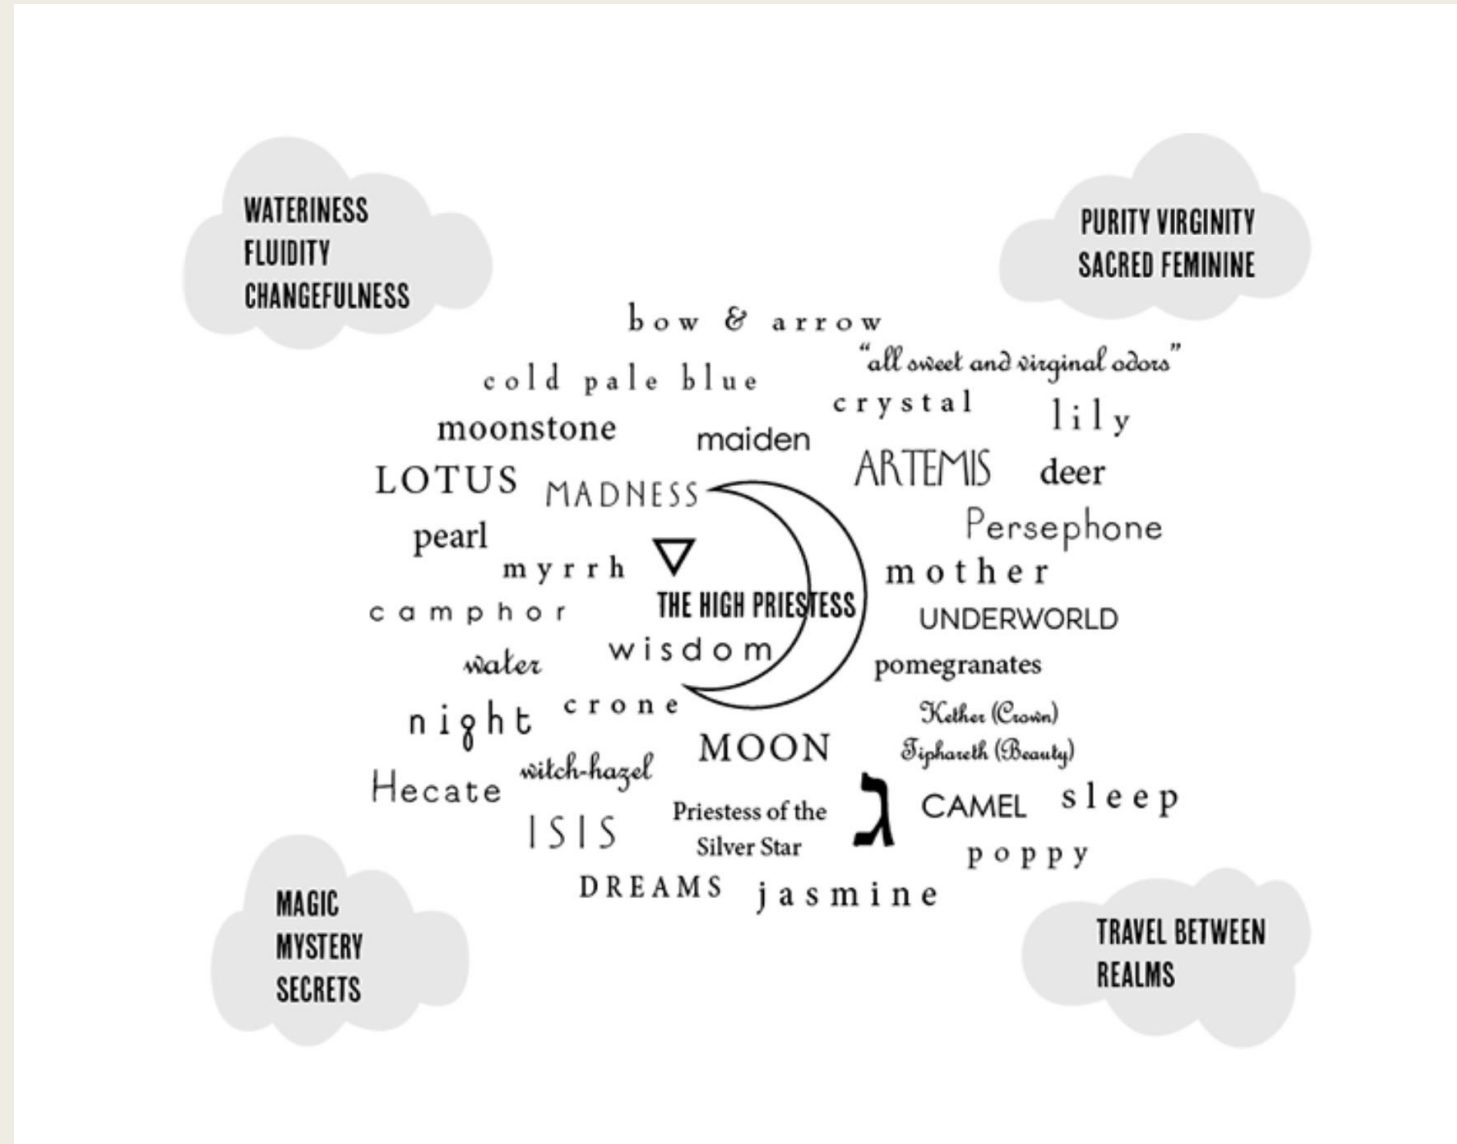 WATERINESS
FLUIDITY
CHANGEFULNESS
PURITY VIRGINITY
SACRED FEMININE
bow & arrow
“all sweet and virginal odors”
cold pale blue
crystal
lily
moonstone
maiden
LOTUS
MADNESS
ARTEMIS
deer
pearl
Persephone
myrrh
mother
camphor
THE HIGH PRIESTESS
UNDERWORLD
wisdom
water
pomegranates
night
crone
Kether (Crown)
MOON
Tiphareth (Beauty)
witch-hazel
Hecate
ISIS
Priestess of the
Silver Star
ג
CAMEL
sleep
poppy
DREAMS
jasmine
MAGIC
MYSTERY
SECRETS
TRAVEL BETWEEN
REALMS